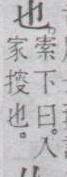 也。
索下曰。入
家搜也。